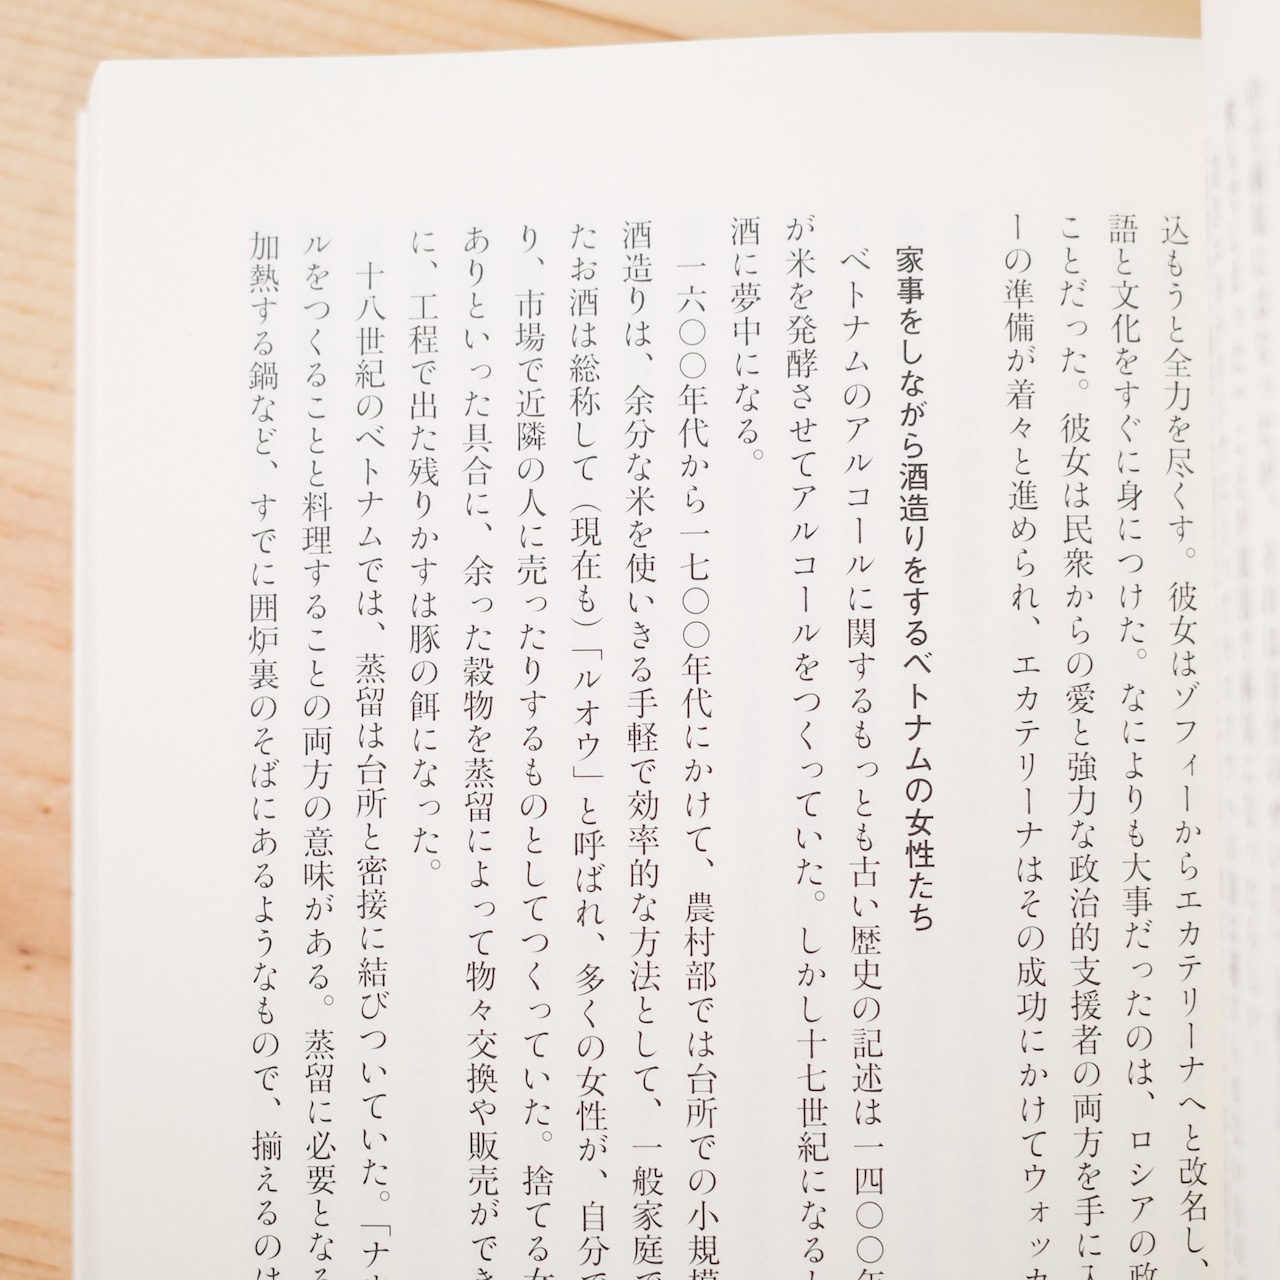 込もうと全力を尽くす。彼女はゾフィーからエカテリーナへと改名し、
語と文化をすぐに身につけた。なによりも大事だったのは、ロシアの政
ことだった。彼女は民衆からの愛と強力な政治的支援者の両方を手に入
ーの準備が着々と進められ、エカテリーナはその成功にかけてウォッカ
家事をしながら酒造りをするベトナムの女性たち
ベトナムのアルコールに関するもっとも古い歴史の記述は一四〇〇年
が米を発酵させてアルコールをつくっていた。しかし十七世紀になるし
酒に夢中になる。
一六〇〇年代から一七〇〇年代にかけて、農村部では台所での小規模
酒造りは、余分な米を使いきる手軽で効率的な方法として、一般家庭で
たお酒は総称して（現在も）「ルオウ」と呼ばれ、多くの女性が、自分で
り、市場で近隣の人に売ったりするものとしてつくっていた。捨てる
ありといった具合に、余った穀物を蒸留によって物々交換や販売ができ
に、工程で出た残りかすは豚の餌になった。
十八世紀のベトナムでは、蒸留は台所と密接に結びついていた。「ナ
ルをつくることと料理することの両方の意味がある。蒸留に必要となる
加熱する鍋など、すでに囲炉裏のそばにあるようなもので、揃えるのは